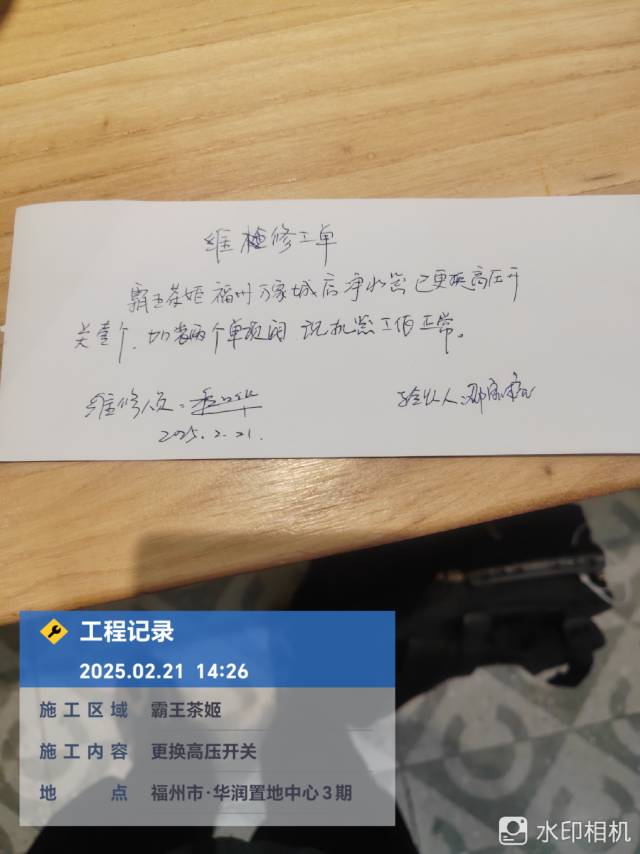 维检修工单
霸王茶姬 福州万象城店净水器已更换高压开
关壹个,加装两个单向阀,说机器工作正常。
维修员:
验收人:
2025.2.21.
工程记录
2025.02.21 14:26
施工区域 霸王茶姬
施工内容 更换高压开关
地点 福州市·华润置地中心3期
水印相机